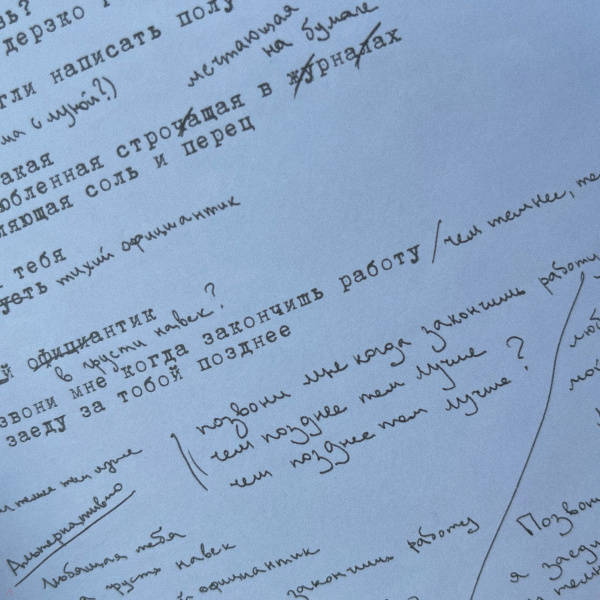 дерзко
гли написать полу
мечтающая
на бумаге
ма с луной?)
акая
юбленная строчащая в журналах
ляющая соль и перец
тебя
уеть тихий официантик
й официантик
в грусти навек?
звони мне когда закончишь работу / чем темнее, те
заеду за тобой позднее
позвони мне когда закончишь работу
чем позднее тем лучше
чем позднее тем лучше?
тем лучше
Альтернативно
любящая тебя
грусть навек
й официантик
закончишь работу
люб
мо
Позвон
я заеду